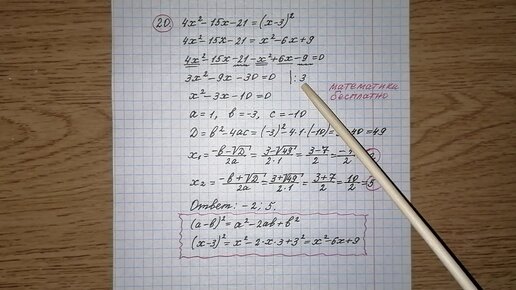 20) 4x² - 15x - 21 = (x-3)²
4x² - 15x - 21 = x² - 6x + 9
4x² - 15x - 21 - x² + 6x - 9 = 0
3x² - 9x - 30 = 0 |:3
математика бесплатно
x² - 3x - 10 = 0
a = 1, b = -3, c = -10
D = b² - 4ac = (-3)² - 4·1·(-10) = 40 = 49
x₁ = (-b-√D)/2a = (3-√49)/(2·1) = (3-7)/2 = -4/2
x₂ = (-b+√D)/2a = (3+√49)/(2·1) = (3+7)/2 = 10/2 = 5
Ответ: -2; 5.
(a-b)² = a² - 2ab + b²
(x-3)² = x² - 2·x·3 + 3² = x² - 6x + 9